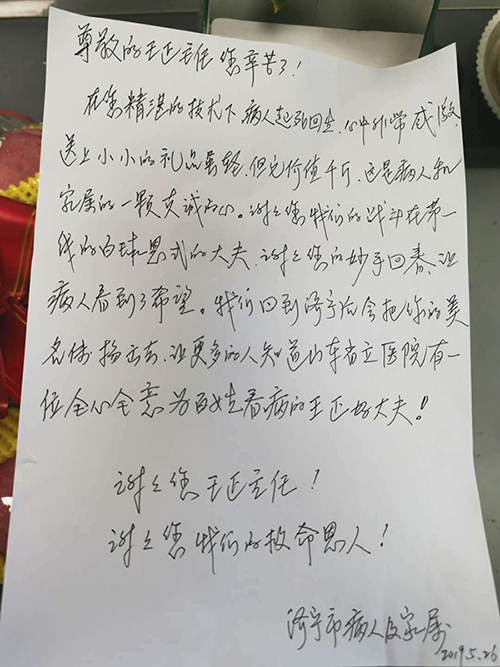 尊敬的王正主任您辛苦了!
在您精湛的技术下病人起死回生,心中非常感激,
送上小小的礼品虽轻,但它价值千斤,这是病人和
家属的一颗真诚的心。谢谢您我们的战斗在第一
线的白求恩式的大夫,谢谢您的妙手回春,让
病人看到了希望。我们回到济宁后会把你的美
名传扬出去,让更多的人知道山东省立医院有一
位全心全意为百姓看病的王正好大夫!
谢谢您王正主任!
谢谢您我们的救命恩人!
济宁市病人及家属
2019.5.26